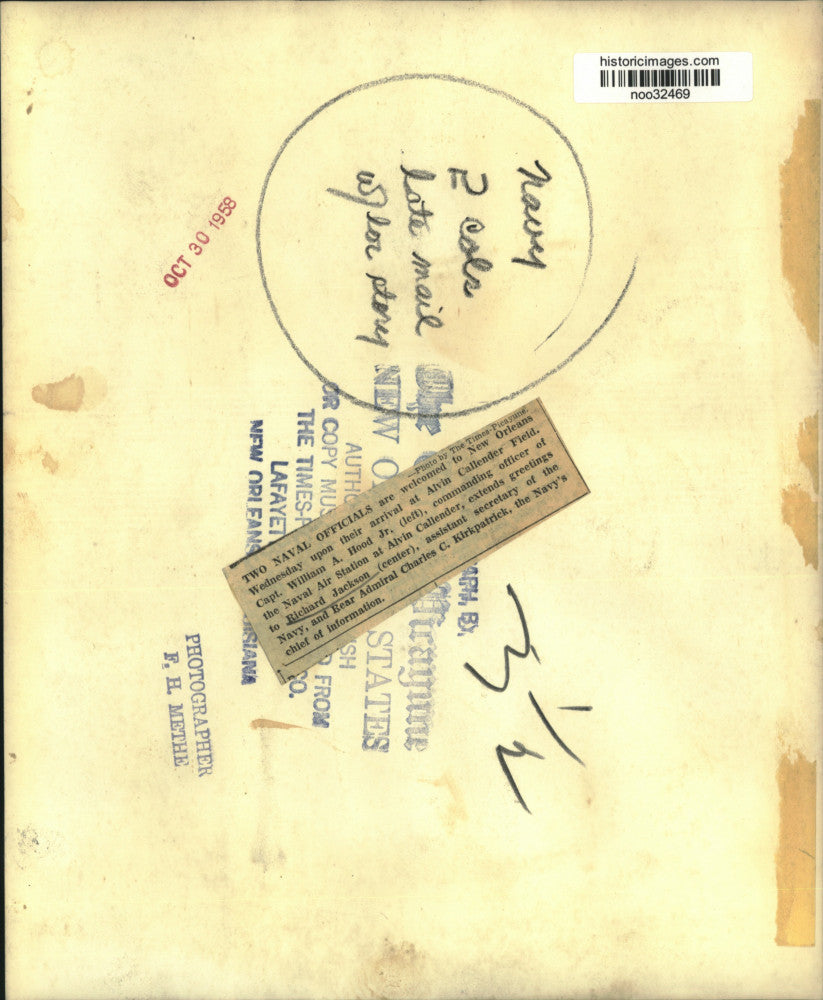 historicimages.com
noo32469
OCT 30 1958
Navy
2 cols
late mail
w/ loc story
—Photo by The Times-Picayune.
TWO NAVAL OFFICIALS are welcomed to New Orleans
Wednesday upon their arrival at Alvin Callender Field.
Capt. William A. Hood Jr. (left), commanding officer of
the Naval Air Station at Alvin Callender, extends greetings
to Richard Jackson (center), assistant secretary of the
Navy, and Rear Admiral Charles C. Kirkpatrick, the Navy's
chief of information.
APH BY
The Picayune
NEW O STATES
AUTHO ISH
OR COPY MUS D FROM
THE TIMES-P CO.
LAFAYET
NEW ORLEANS ISIANA
3 1/2
PHOTOGRAPHER
F. H. METHE